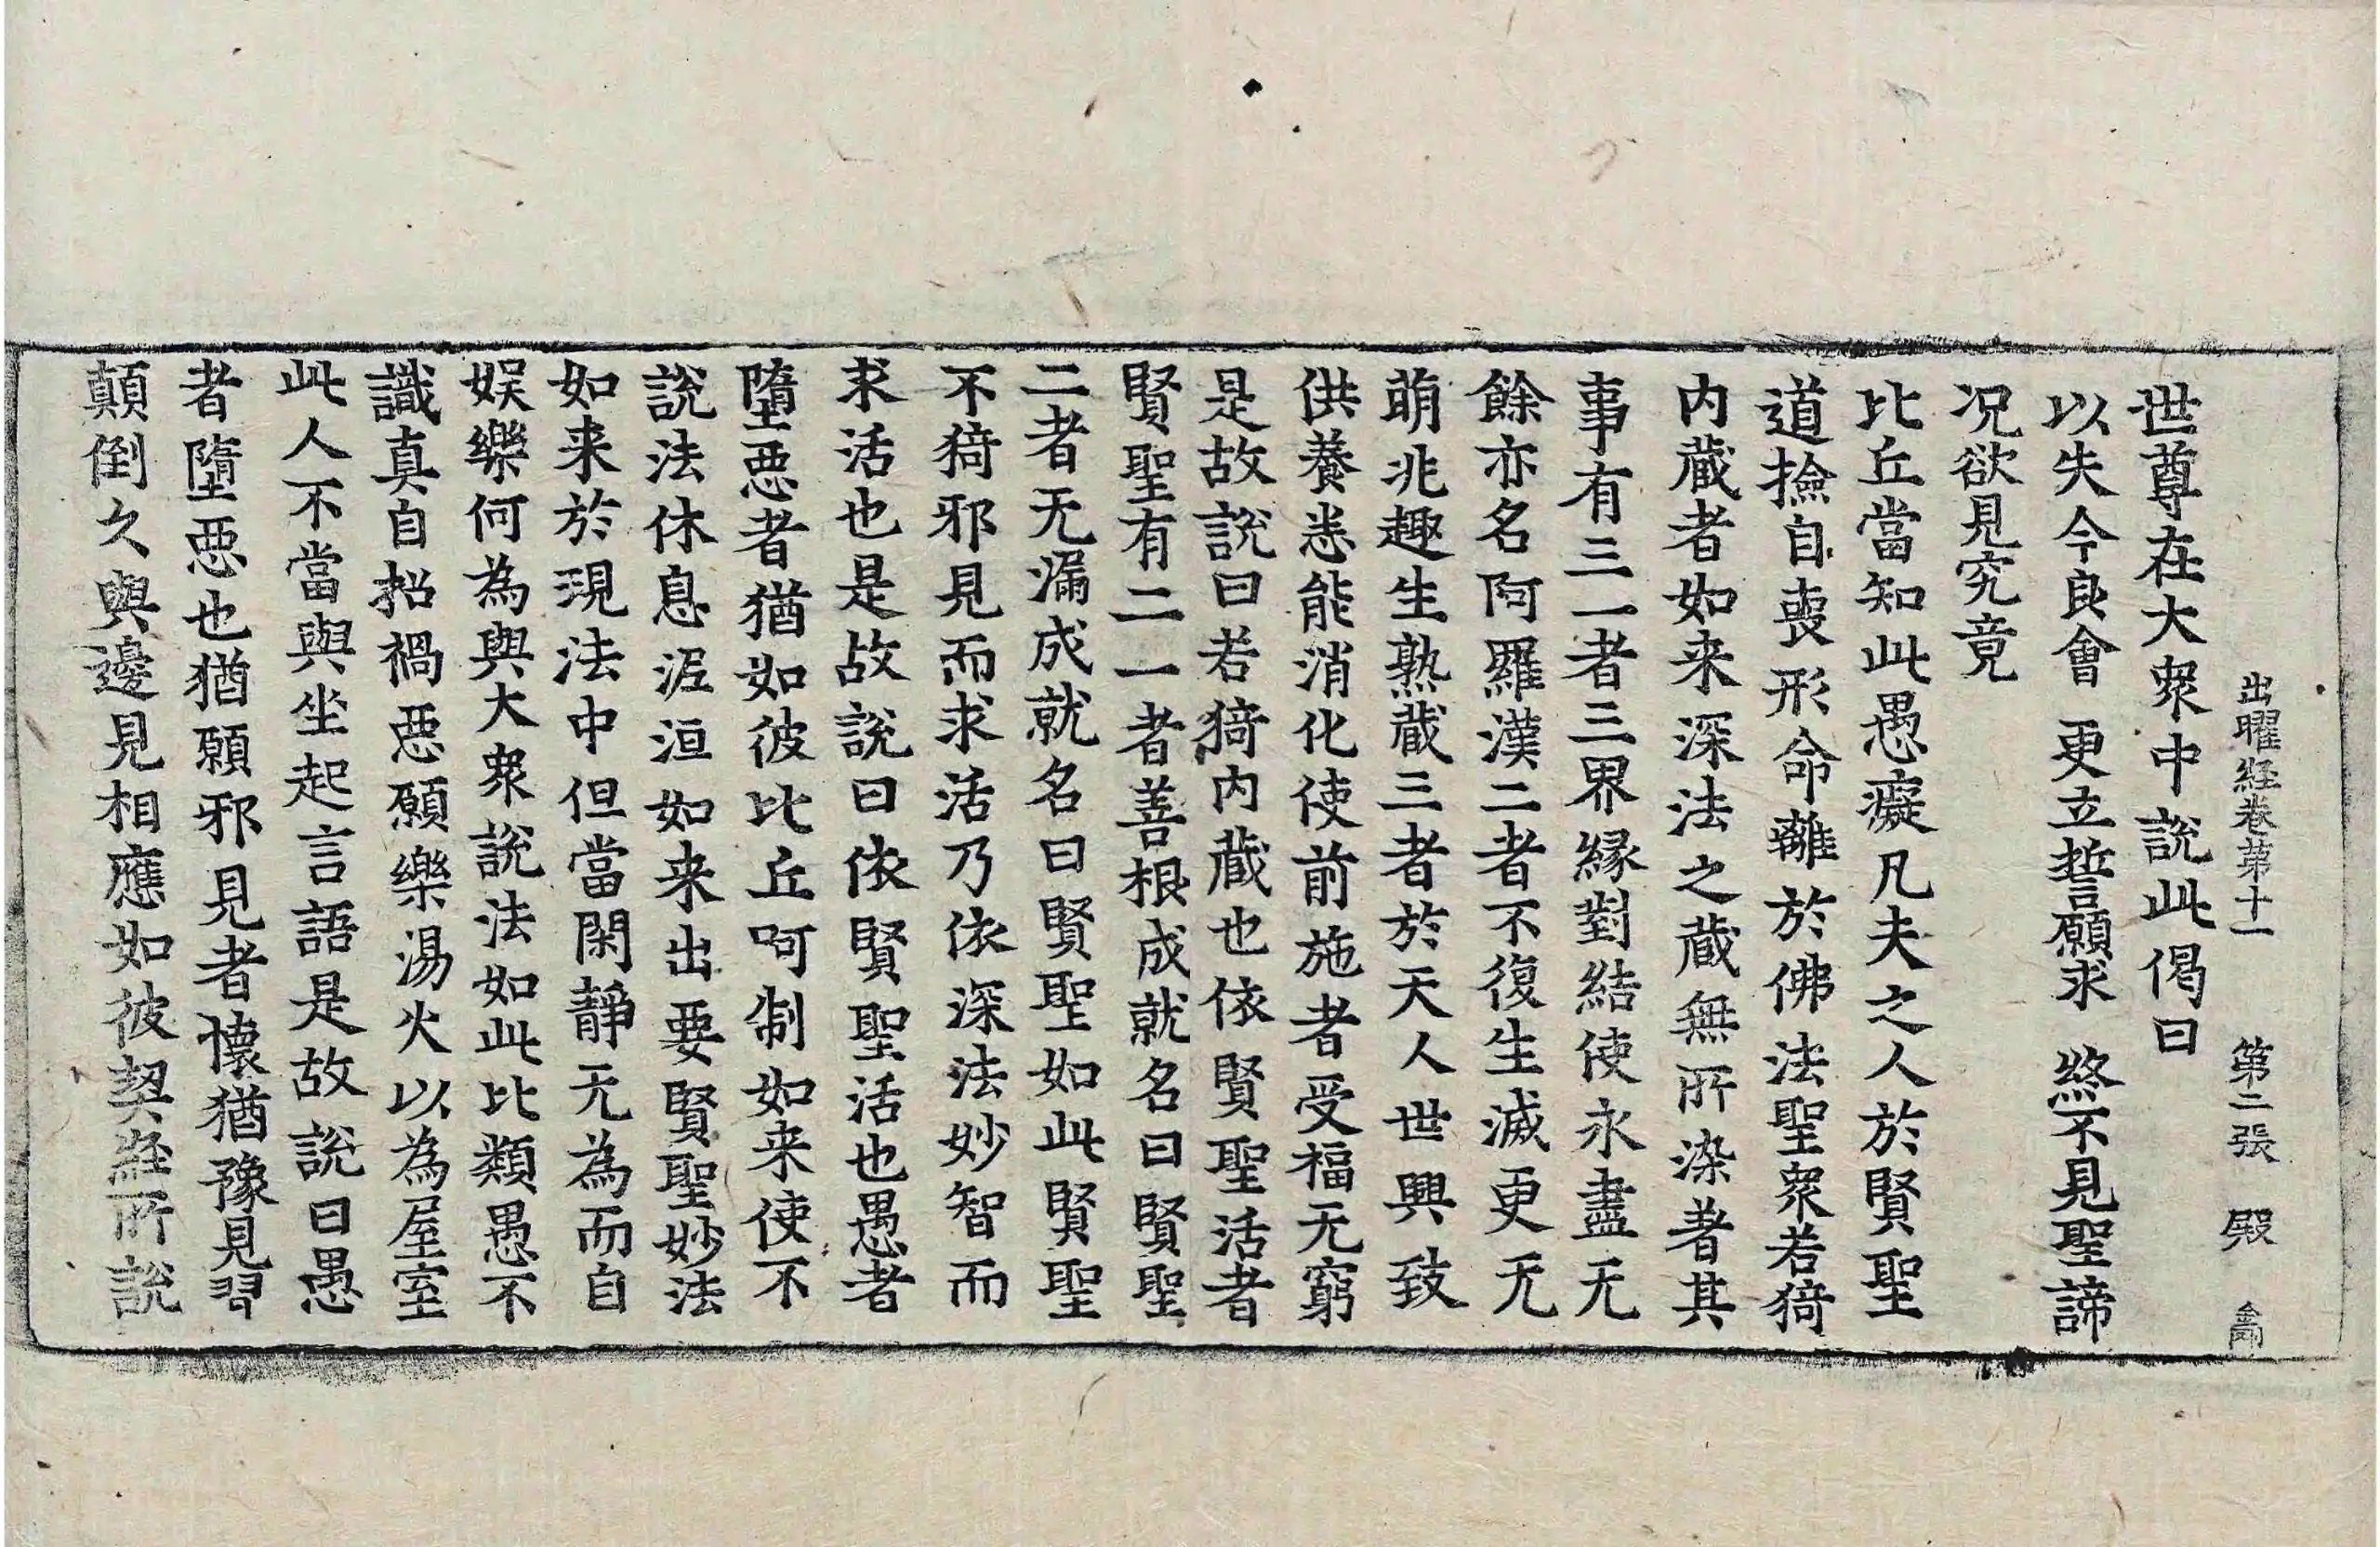 出曜經卷第十一　第二張　殿
世尊在大衆中說此偈曰
以失今良會　更立誓願求　終不見聖諦
况欲見究竟
比丘當知此愚癡凡夫之人於賢聖
道撿自喪形命離於佛法聖衆若猗
内藏者如来深法之藏無所染著其
事有三一者三界縁對結使永盡无
餘亦名阿羅漢二者不復生滅更无
萌兆趣生熟藏三者於天人世興致
供養悉能消化使前施者受福无窮
是故說曰若猗内藏也依賢聖活者
賢聖有二一者善根成就名曰賢聖
二者无漏成就名曰賢聖如此賢聖
不猗邪見而求活乃依深法妙智而
求活也是故說曰依賢聖活也愚者
墮惡者猶如彼比丘呵制如来使不
說法休息泥洹如来出要賢聖妙法
如来於現法中但當閑靜无為而自
娱樂何為與大衆說法如此比類愚不
識真自招禍惡願樂湯火以為屋室
此人不當與坐起言語是故說曰愚
者墮惡也猶願邪見者懷猶豫見習
顛倒久與邊見相應如彼契經所說